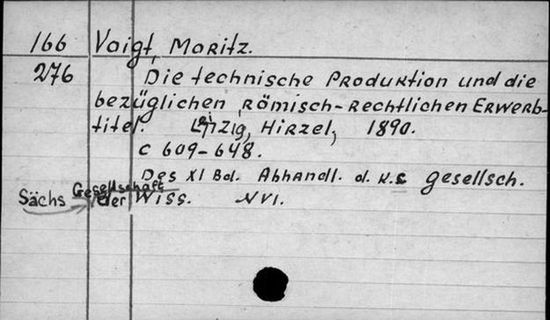 166 Voigt, Moritz.
276 Die technische Produktion und die
bezüglichen römisch-rechtlichen Erwerb-
titel. Leipzig, Hirzel, 1890.
c 609-648.
Des XI Bd. Abhandl. d. K.S. gesellsch.
Sächs Gesellschaft der Wiss. NVI.